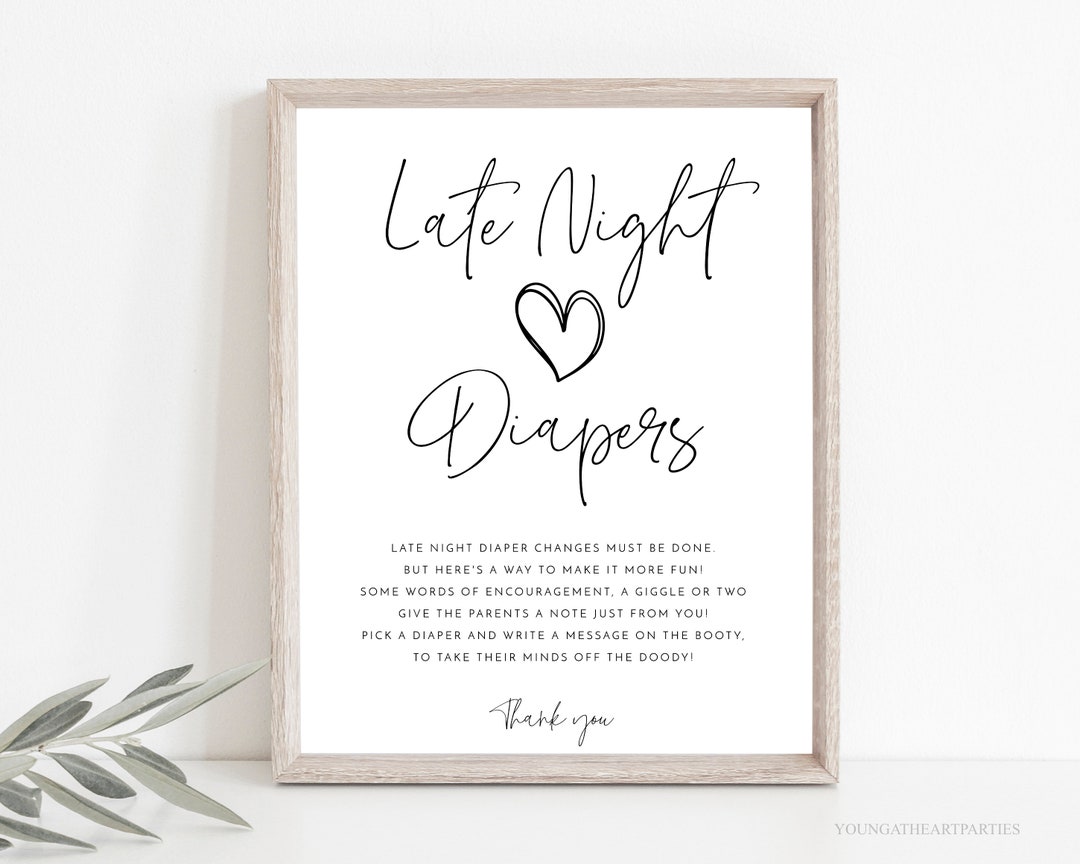 Late Night
Diapers
LATE NIGHT DIAPER CHANGES MUST BE DONE.
BUT HERE'S A WAY TO MAKE IT MORE FUN!
SOME WORDS OF ENCOURAGEMENT, A GIGGLE OR TWO
GIVE THE PARENTS A NOTE JUST FROM YOU!
PICK A DIAPER AND WRITE A MESSAGE ON THE BOOTY,
TO TAKE THEIR MINDS OFF THE DOODY!
Thank you
YOUNGATHEARTPARTIES